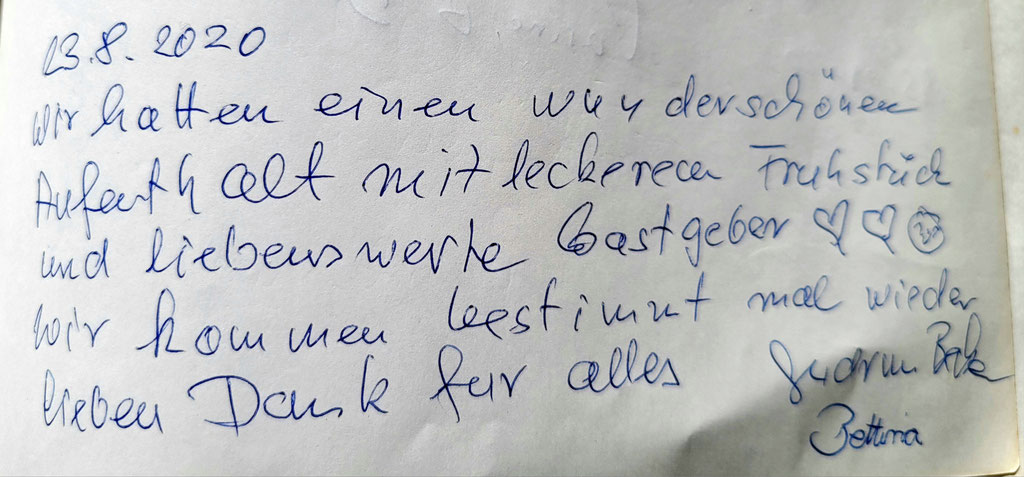 23.8.2020
Wir hatten einen wunderschönen
Aufenthalt mit leckerem Frühstück
und liebenswerte Gastgeber ♡ ♡
Wir kommen bestimmt mal wieder
lieben Dank für alles Gudrun
Bettina